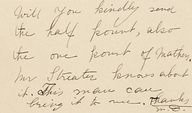 Will you kindly send
the half pound, also
the one pound of
Mr Streater knows about
it. This man can
bring it to me. Thanks